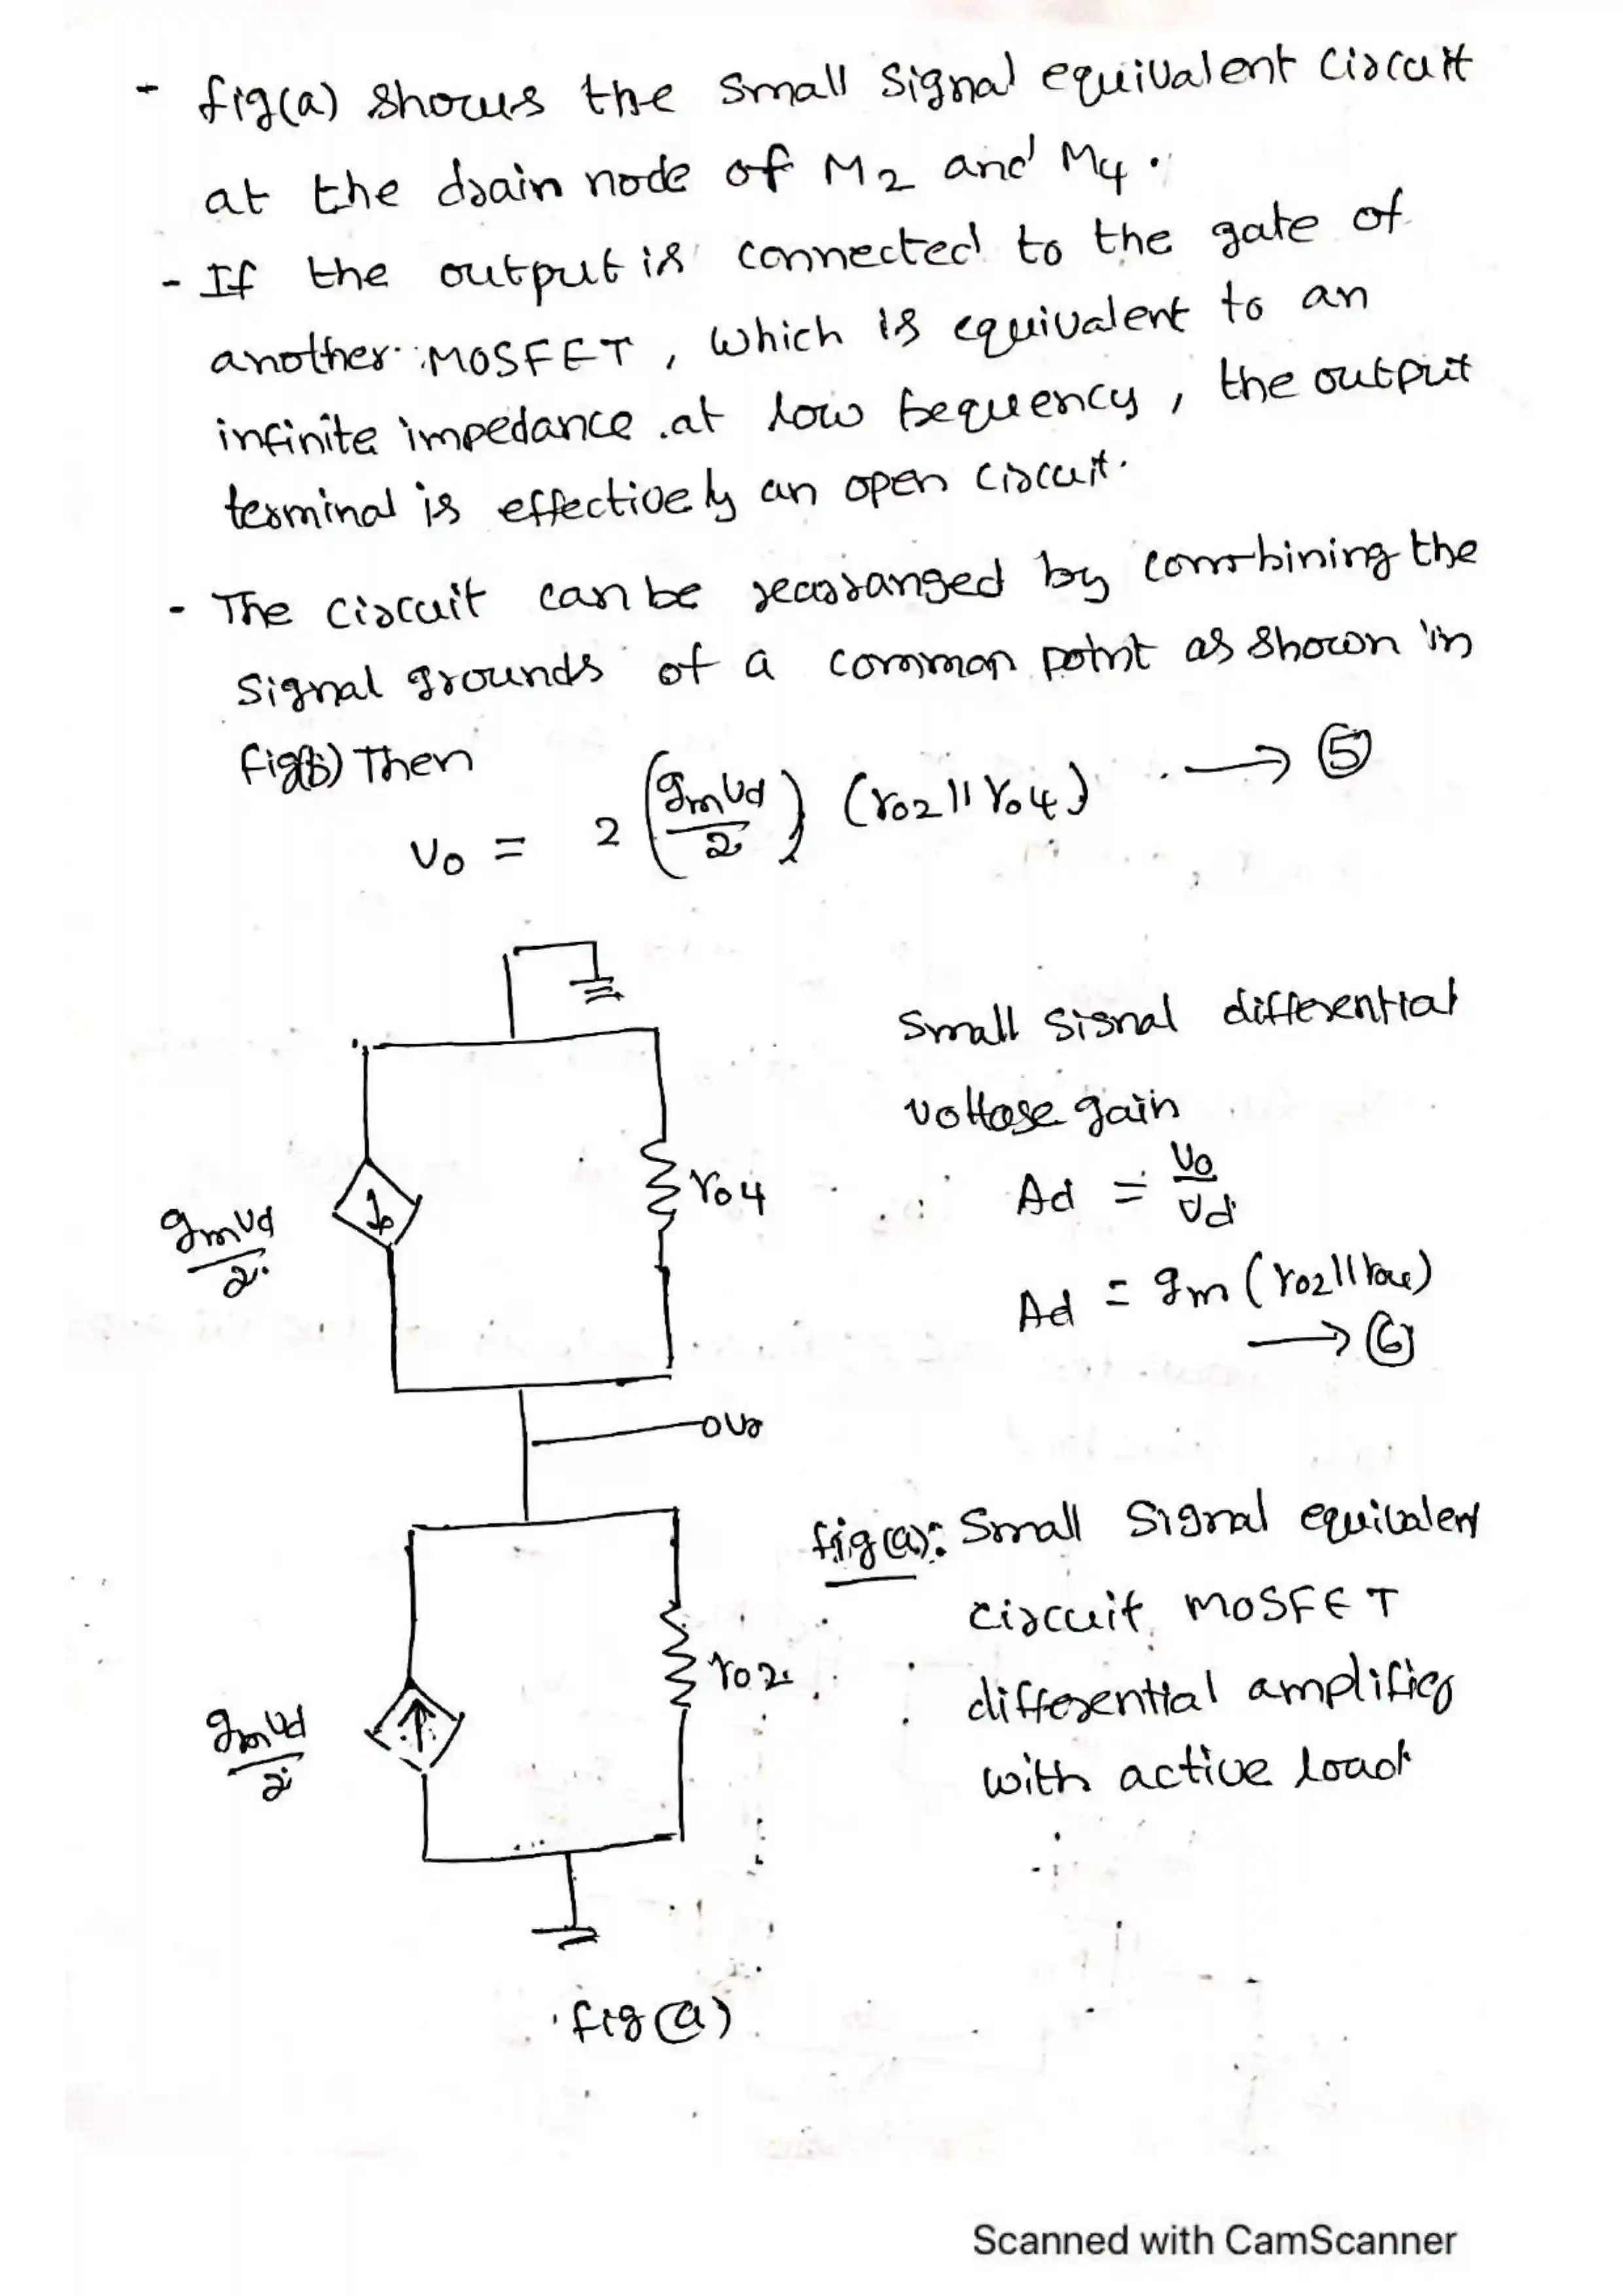 - fig(a) shows the small signal equivalent circuit
at the drain node of M2 and M4.
- If the output is connected to the gate of
another MOSFET, which is equivalent to an
infinite impedance at low fequency, the output
terminal is effectively an open circuit.
- The circuit can be rearranged by combining the
signal grounds of a common point as shown in
fig(b) Then
Vo = 2 (gmVd/2) (ro2 || ro4) → ⑤
Small signal differential
voltage gain
Ad = Vo/Vd
Ad = gm (ro2 || ro4)
→ ⑥
gmVd/2
ro4
oVo
fig(a): Small Signal equivalent
circuit MOSFET
differential amplifier
with active load
gmVd/2
ro2
fig(a)
Scanned with CamScanner